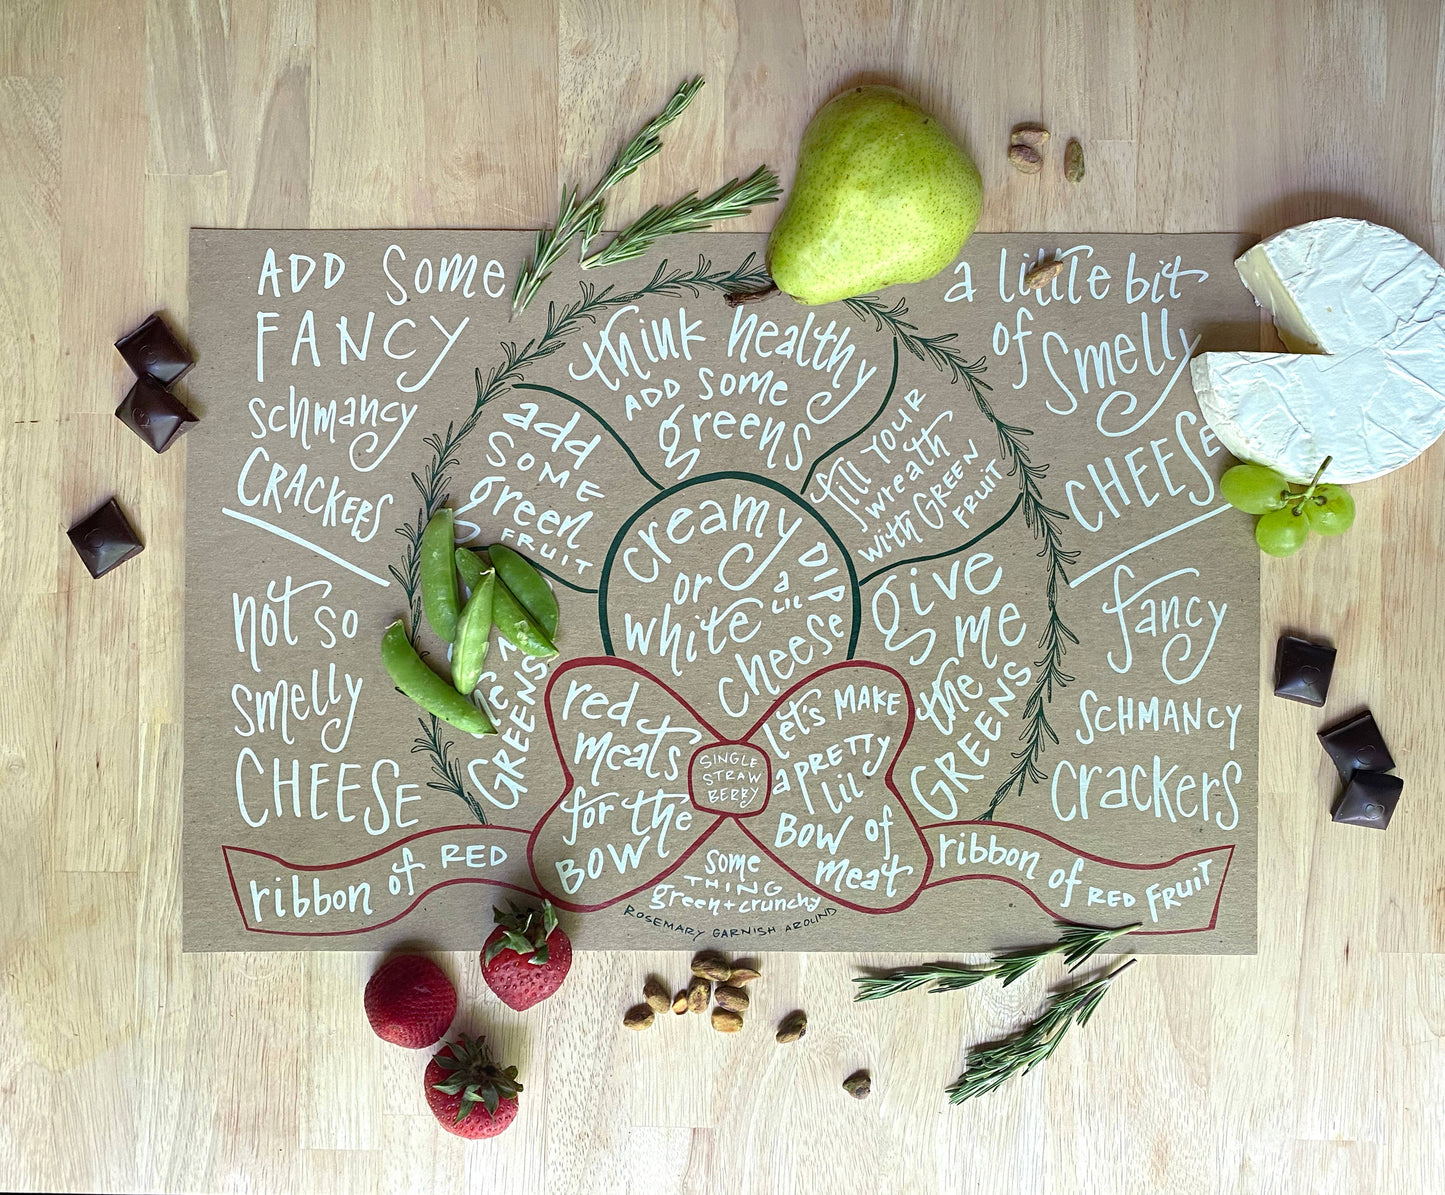 ADD Some
FANCY
schmancy
CRACKERS
not so
smelly
CHEESE
think healthy
ADD some
greens
add
SOME
green
FRUIT
fill YOUR
wreath
with GREEN
FRUIT
a little bit
of Smelly
CHEESE
fancy
SCHMANCY
crackers
creamy DIP
or a
LIL
white cheese
GREENS
give
me
the
GREENS
red
meats
for the
BOW
SINGLE
STRAW
BERRY
let's MAKE
a PRETTY
lil
BOW of
meat
ribbon of RED
some
THING
green + crunchy
ROSEMARY GARNISH AROUND
ribbon of RED FRUIT